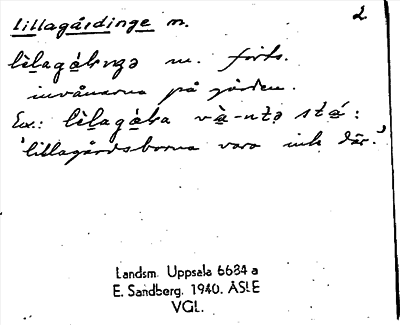 lillagårdinge m. 2
lìlagákṇgə m. förb.
invånarna på gården.
Ex.: lìlagáka và-ntə stá:
'lillagårdsborna vara inte där.'
Landsm. Uppsala 6684 a
E. Sandberg. 1940. ÅSLE
VGL.